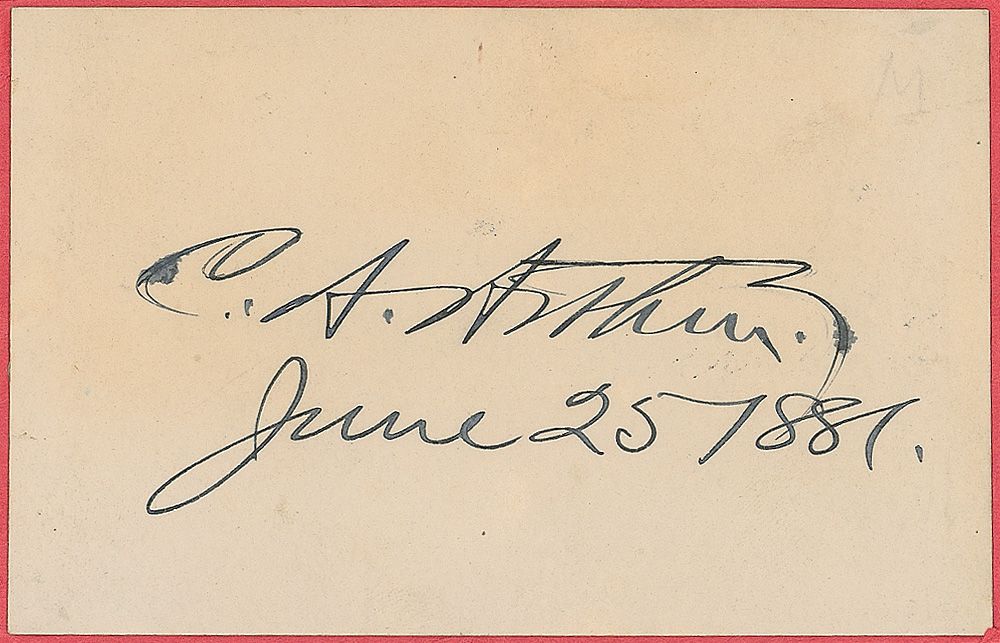 C. A. Arthur.
June 25 1881.
M